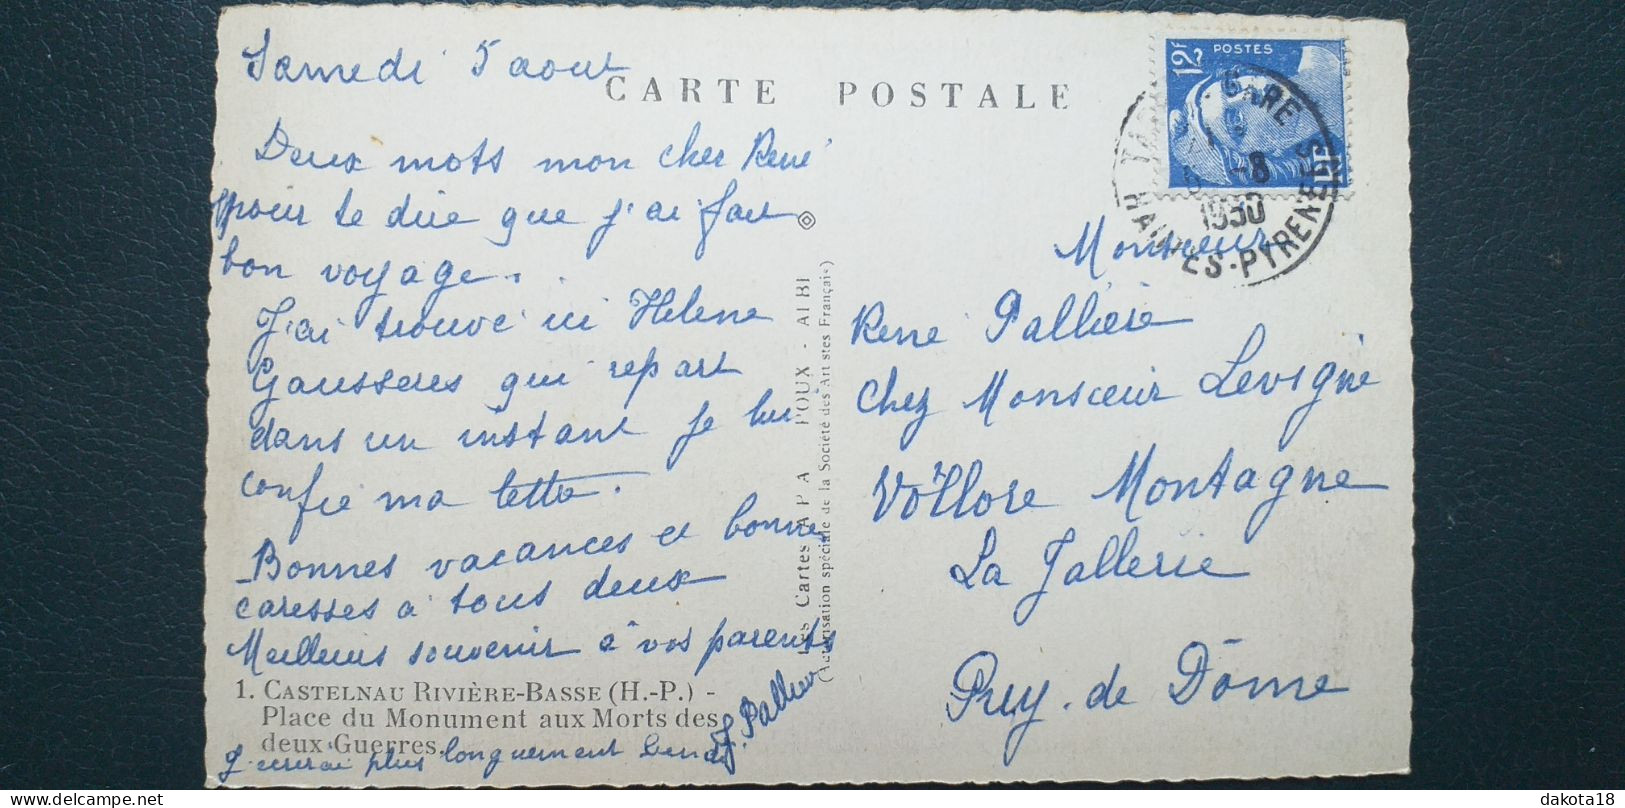 Samedi 5 aout
CARTE POSTALE
Deux mots mon cher René
pour te dire que j'ai fait
bon voyage.
J'ai trouvé ici Hélene
Gausseres qui repart
dans un instant je lui
confie ma lettre.
Bonnes vacances et bonnes
caresses à tous deux
Meilleurs souvenir à vos parents
J. Pallier
1. CASTELNAU RIVIÈRE-BASSE (H.-P.) -
Place du Monument aux Morts des
deux Guerres.
J'ecrirai plus longuement Lundi
LES Cartes A P A POUX - ALBI
(Autorisation spéciale de la Société des Artistes Français)
12F POSTES
GARE
-8
1950
HAUTES-PYRENEES
Monsieur
René Palliere
chez Monsieur Levigne
Vollore Montagne
La Jallerie
Puy. de Dôme
dakota18